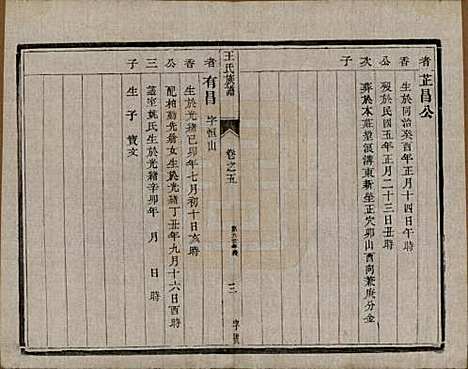 者 芷昌公
香 生於同治癸酉年正月十四日午時
公 殁於民國五年正月二十三日丑時
次 葬於本莊堂溟溝東新坐正穴卯山酉向兼庚分金
子
王氏族譜
卷之五
三
者 有昌 字恒山
香 生於光緒己卯年七月初十日亥時
公 配柏勤先翁女生於光緒丁丑年九月十六日酉時
三 簉室姚氏生於光緒辛卯年 月 日 時
子 生子 寶文